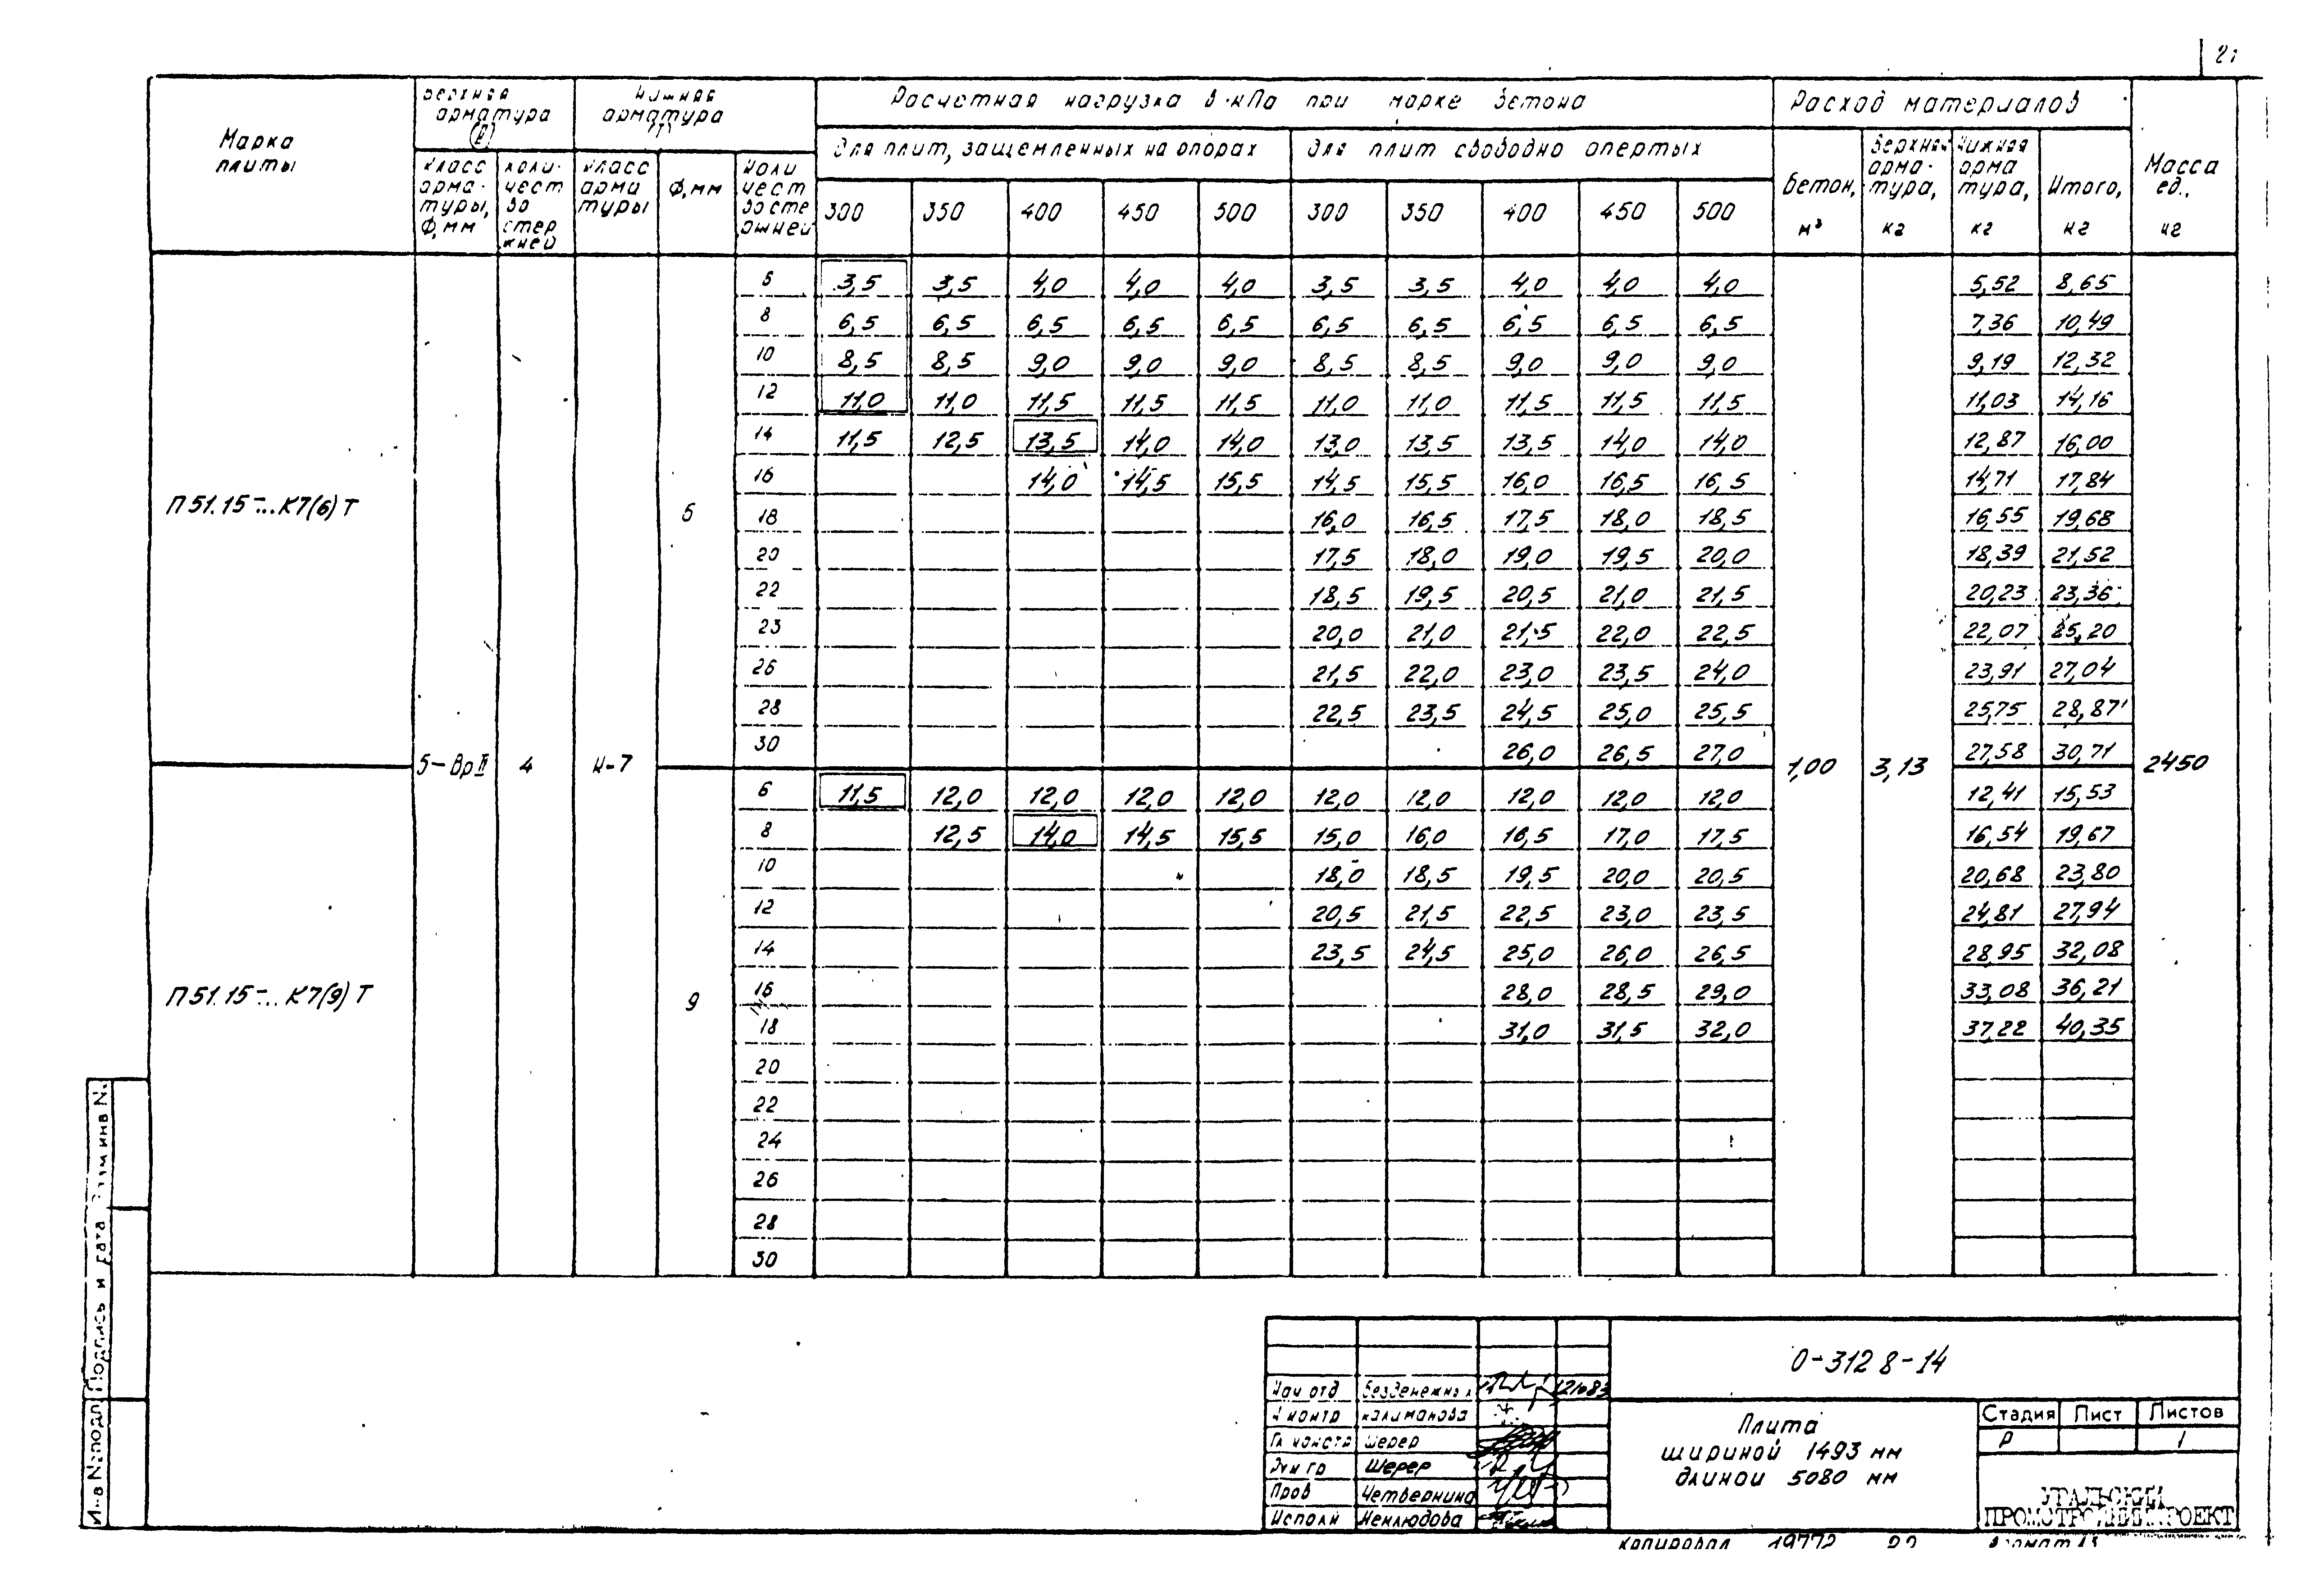 Марка плиты
Верхняя арматура (В)
Нижняя арматура (Т)
Расчетная нагрузка в кПа при марке бетона
Расход материалов
Масса ед., кг
Класс арматуры, Ф, мм
Количество стержней
Класс арматуры
Ф, мм
Количество стержней
Для плит, защемленных на опорах
Для плит свободно опертых
Бетон, м³
Верхняя арматура, кг
Нижняя арматура, кг
Итого, кг
300 350 400 450 500 300 350 400 450 500
П 51.15-... К7(6) Т
5-Вр II 4 К-7 6
1,00 3,13 2450
6 3,5 3,5 4,0 4,0 4,0 3,5 3,5 4,0 4,0 4,0 5,52 8,65
8 6,5 6,5 6,5 6,5 6,5 6,5 6,5 6,5 6,5 6,5 7,36 10,49
10 8,5 8,5 9,0 9,0 9,0 8,5 8,5 9,0 9,0 9,0 9,19 12,32
12 11,0 11,0 11,5 11,5 11,5 11,0 11,0 11,5 11,5 11,5 11,03 14,16
14 11,5 12,5 13,5 14,0 14,0 13,0 13,5 13,5 14,0 14,0 12,87 16,00
16 14,0 14,5 15,5 14,5 15,5 16,0 16,5 16,5 14,71 17,84
18 16,0 16,5 17,5 18,0 18,5 16,55 19,68
20 17,5 18,0 19,0 19,5 20,0 18,39 21,52
22 18,5 19,5 20,5 21,0 21,5 20,23 23,36
23 20,0 21,0 21,5 22,0 22,5 22,07 25,20
26 21,5 22,0 23,0 23,5 24,0 23,91 27,04
28 22,5 23,5 24,5 25,0 25,5 25,75 28,87
30 26,0 26,5 27,0 27,58 30,71
П 51.15-... К7(9) Т
9
6 11,5 12,0 12,0 12,0 12,0 12,0 12,0 12,0 12,0 12,0 12,41 15,53
8 12,5 14,0 14,5 15,5 15,0 16,0 16,5 17,0 17,5 16,54 19,67
10 18,0 18,5 19,5 20,0 20,5 20,68 23,80
12 20,5 21,5 22,5 23,0 23,5 24,81 27,94
14 23,5 24,5 25,0 26,0 26,5 28,95 32,08
16 28,0 28,5 29,0 33,08 36,21
18 31,0 31,5 32,0 37,22 40,35
20
22
24
26
28
30
Взам инв N
Подпись и дата
Инв N подл
0-312 8-14
Нач отд Безденежных
Н контр Калиманова
Гл констр Шерер
Рук гр Шерер
Пров Четвернина
Исполн Неклюдова
Плита
шириной 1493 мм
длиной 5080 мм
Стадия Лист Листов
Р 1
УРАЛЬСКИЙ
ПРОМСТРОЙНИИПРОЕКТ
Копировал 19772 22 Формат А3